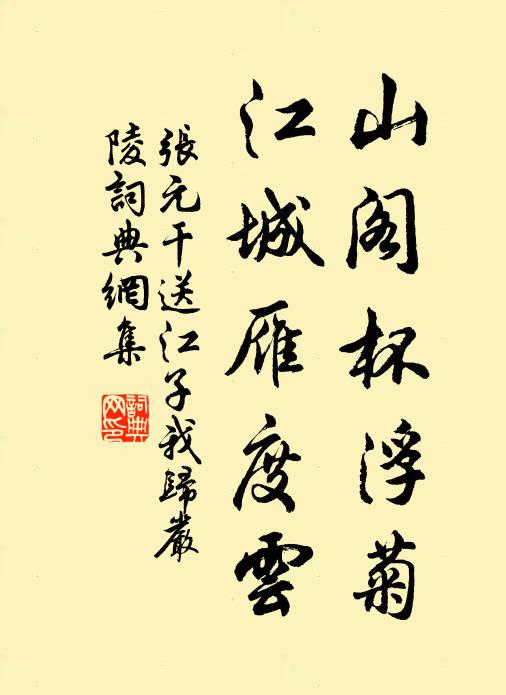 山閣杯浮菊
江城雁度雲
張元干送江子我歸嚴
陵詞典網集
詞典網印